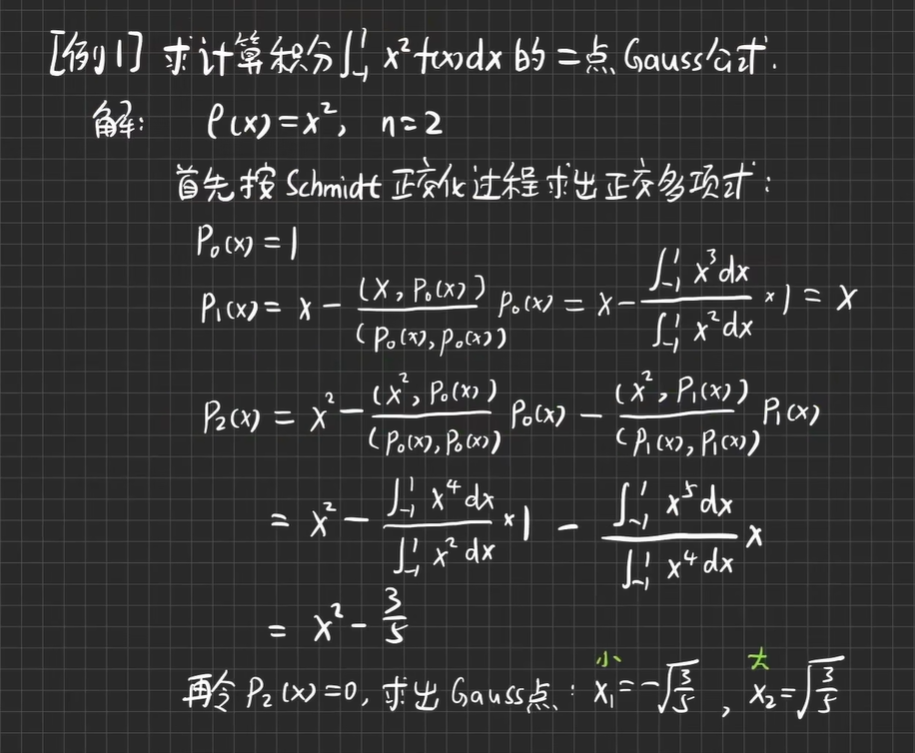 [例1] 求计算积分∫₋₁¹ x²f(x)dx 的二点Gauss公式.
解: ρ(x)=x², n=2
首先按Schmidt正交化过程求出正交多项式:
P₀(x)=1
P₁(x)= x - (x, P₀(x))/(P₀(x), P₀(x)) P₀(x) = x - ∫₋₁¹ x³dx / ∫₋₁¹ x²dx × 1 = x
P₂(x) = x² - (x², P₀(x))/(P₀(x), P₀(x)) P₀(x) - (x², P₁(x))/(P₁(x), P₁(x)) P₁(x)
= x² - ∫₋₁¹ x⁴dx / ∫₋₁¹ x²dx × 1 - ∫₋₁¹ x⁵dx / ∫₋₁¹ x⁴dx x
= x² - 3/5
小 大
再令P₂(x)=0, 求出Gauss点: x₁=-√(3/5), x₂=√(3/5)